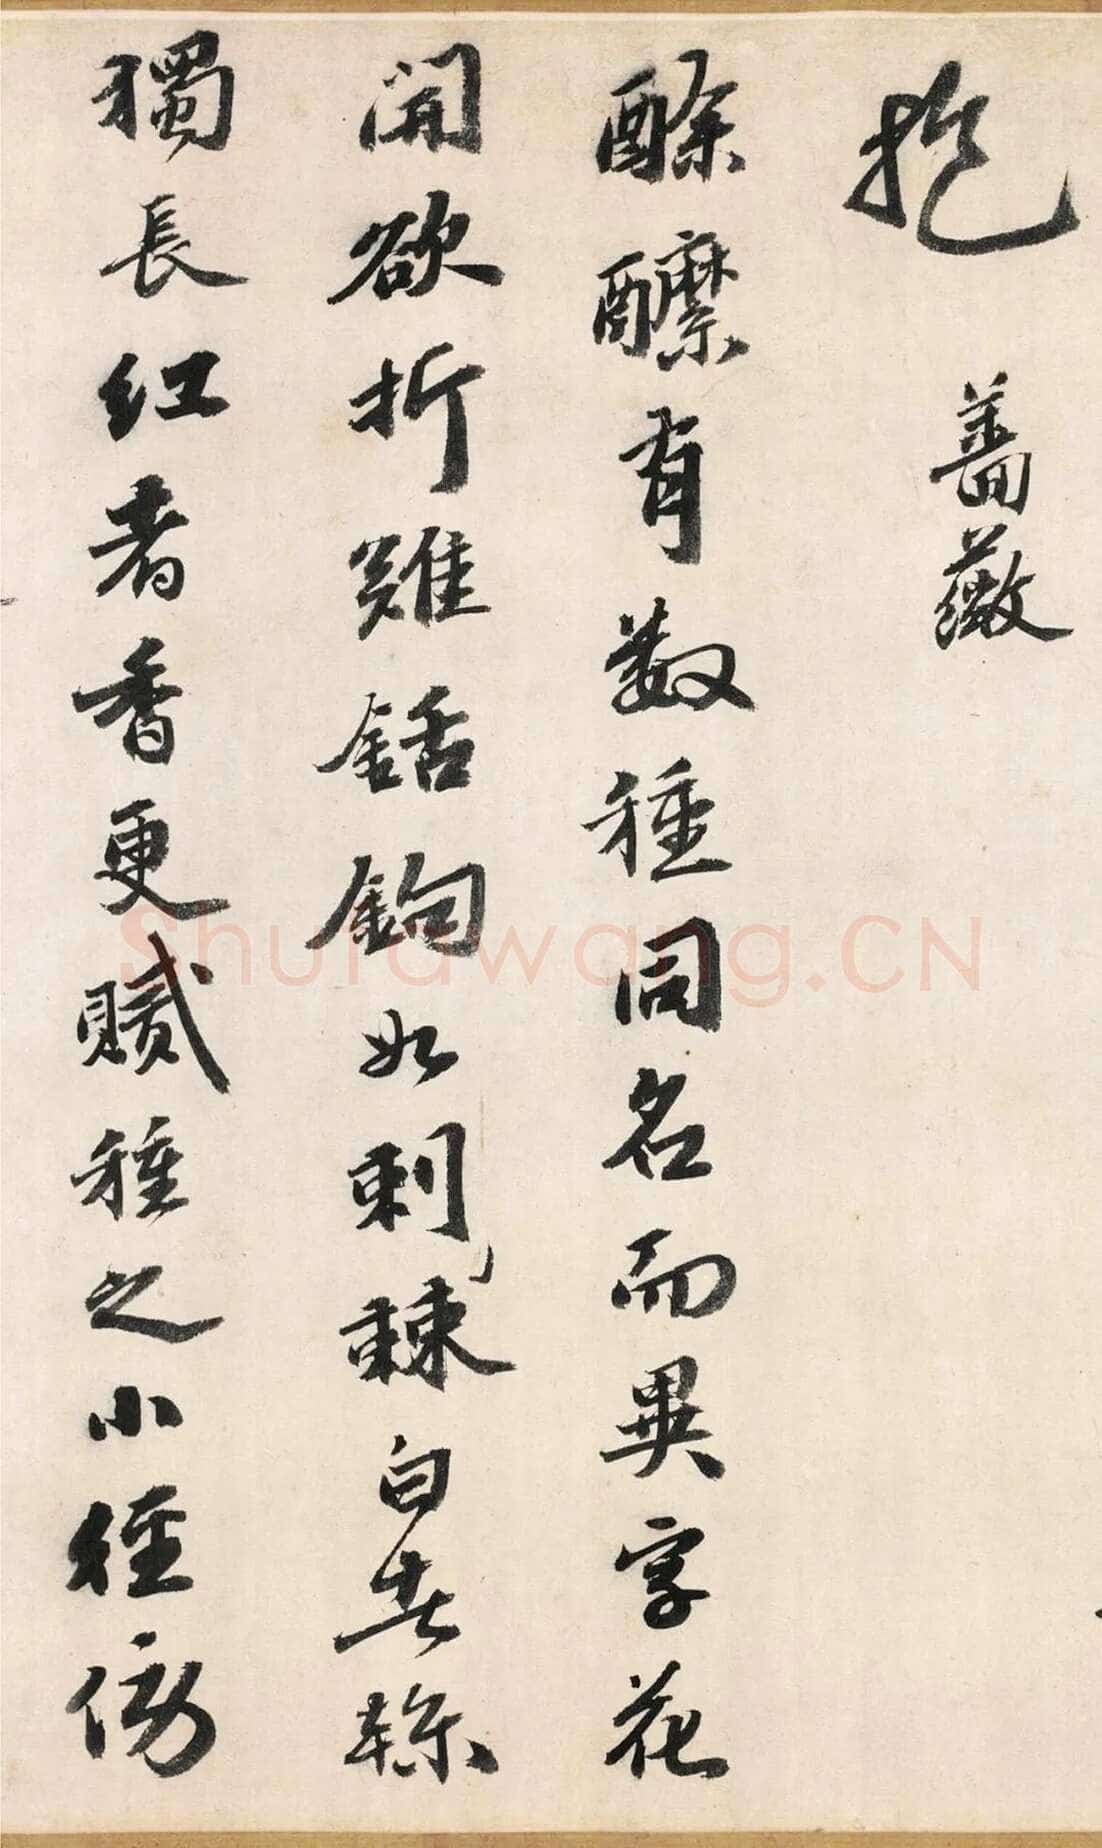 抱
薔薇
酴醾有數種同名而異字花
開欲折難銛鉤如刺棘白者條
獨長紅者香更膩種之小徑傍
Shufawang.CN